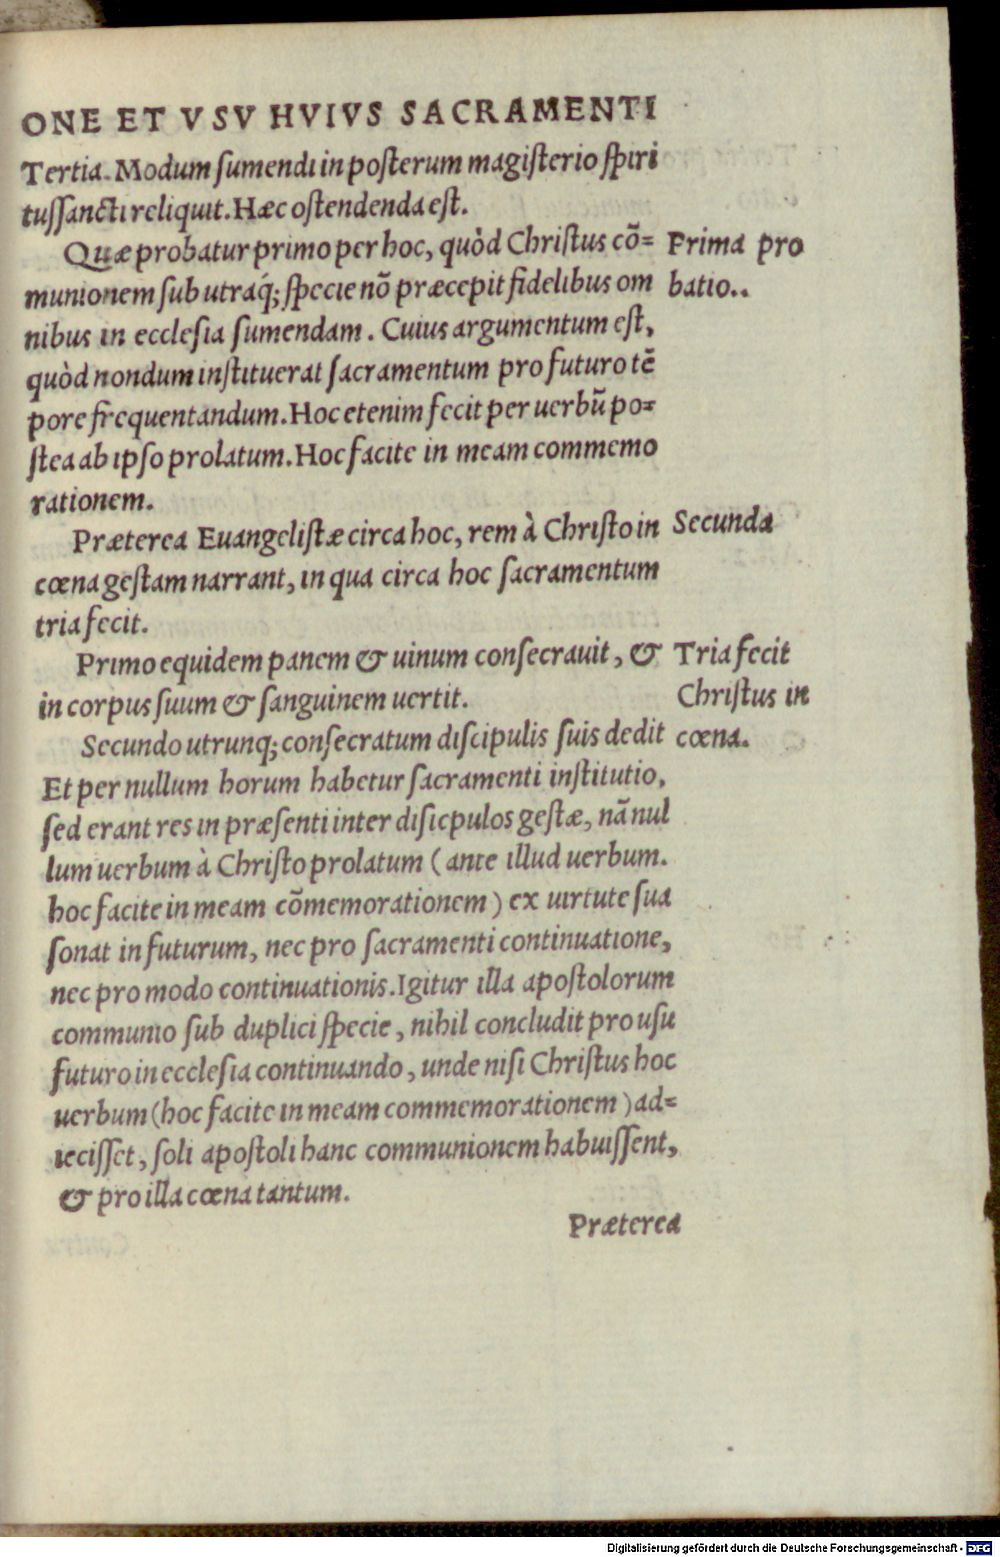 ONE ET VSV HVIVS SACRAMENTI
Tertia. Modum ſumendi in poſterum magiſterio ſpiri
tuſſancti reliquit. Hæc oſtendenda eſt.
Quæ probatur primo per hoc, quòd Chriſtus cō=
munionem ſub utráq; ſpecie nō præcepit fidelibus om
nibus in eccleſia ſumendam. Cuius argumentum eſt,
quòd nondum inſtituerat ſacramentum pro futuro tē
pore frequentandum. Hoc etenim fecit per uerbū po=
ſtea ab ipſo prolatum. Hoc facite in meam commemo
rationem.
Prima pro
batio..
Præterea Euangeliſtæ circa hoc, rem à Chriſto in
cœna geſtam narrant, in qua circa hoc ſacramentum
tria fecit.
Secunda
Primo equidem panem & uinum conſecrauit, &
in corpus ſuum & ſanguinem uertit.
Secundo utrunq; conſecratum diſcipulis ſuis dedit
Tria fecit
Chriſtus in
cœna.
Et per nullum horum habetur ſacramenti inſtitutio,
ſed erant res in præſenti inter diſicpulos geſtæ, nā nul
lum uerbum à Chriſto prolatum (ante illud uerbum.
hoc facite in meam cōmemorationem) ex uirtute ſua
ſonat in futurum, nec pro ſacramenti continuatione,
nec pro modo continuationis. Igitur illa apoſtolorum
communio ſub duplici ſpecie, nihil concludit pro uſu
futuro in eccleſia continuando, unde niſi Chriſtus hoc
uerbum (hoc facite in meam commemorationem) ad=
ieciſſet, ſoli apoſtoli hanc communionem habuiſſent,
& pro illa cœna tantum.
Præterea
Digitalisierung gefördert durch die Deutsche Forschungsgemeinschaft - DFG